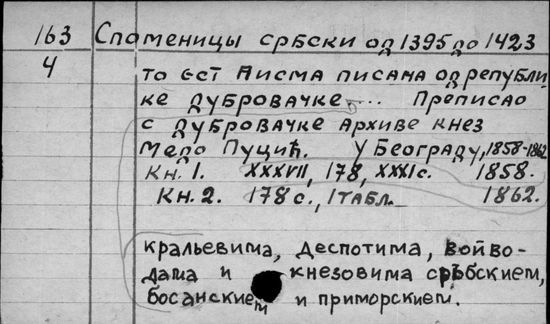 163 Споменицы србски од 1395 до 1423
4 то ест Писма писана од републи
ке дубровачке .... Преписао
с дубровачке архиве кнез
Медо Пуцић. У Београду, 1858-1862
Кн. 1. XXXVII, 178, XXXIc. 1858.
Кн. 2. 178 с., 1 табл. 1862.
кральевима, деспотима, войво-
дама и кнезовима србскием,
босанскием и приморскием.